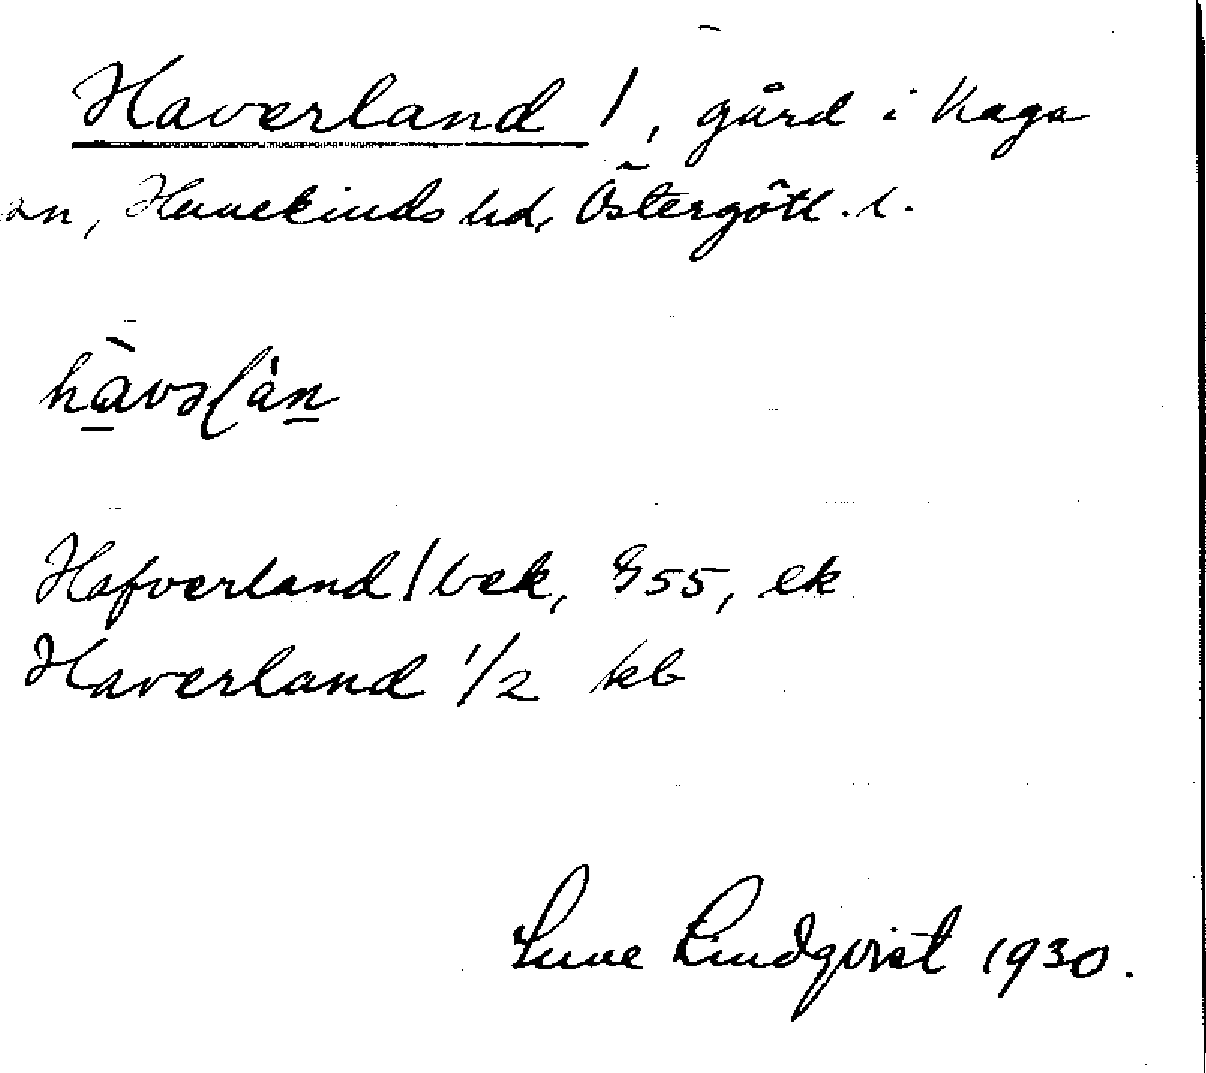 Haverland 1, gård i Kaga
sn, Hanekinds hd, Östergötl. l.
Hafverland 1 bek, G55, ek
Haverland 1/2 kb
Sune Lindqvist 1930.